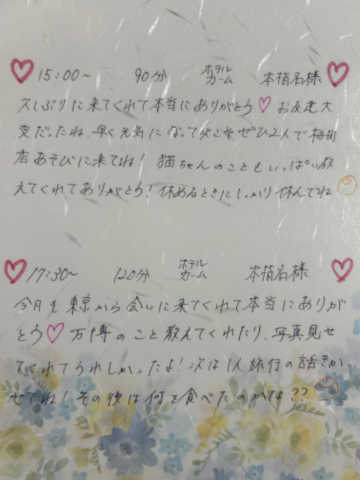 ♡ 15:00〜 90分 ホテルカーム 本指名様 ♡
久しぶりに来てくれて本当にありがとう♡ お母さま大
変だったね、早く元気になって次こそぜひ2人で梅田
店あそびに来てね! 猫ちゃんのこともいっぱい教
えてくれてありがとう! 休めるときにしっかり休んでね
♡ 17:30〜 120分 ホテルカーム 本指名様 ♡
今月も東京から会いに来てくれて本当にありが
とう♡ 万博のこと教えてくれたり、写真見せ
てくれてうれしかったよ! 次は1人旅行の話きか
せてね! その後は何を食べたのかな??